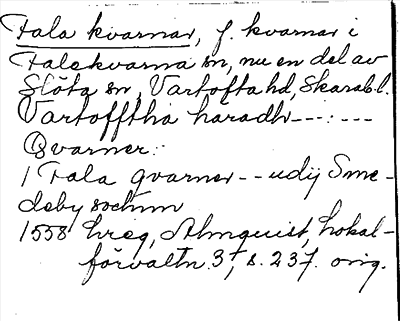 Fala kvarnar, f. kvarnar i
Falekvarna sn, nu en del av
Slöta sn, Vartofta hd, Skarab.l.
Vartofftha häradh---:---
Qvarner:
1 Fala qvarner--udij Sme-
deby sochnn
1558 hreg, Almquist, Lokal-
förvaltn. 3, s. 237. orig.